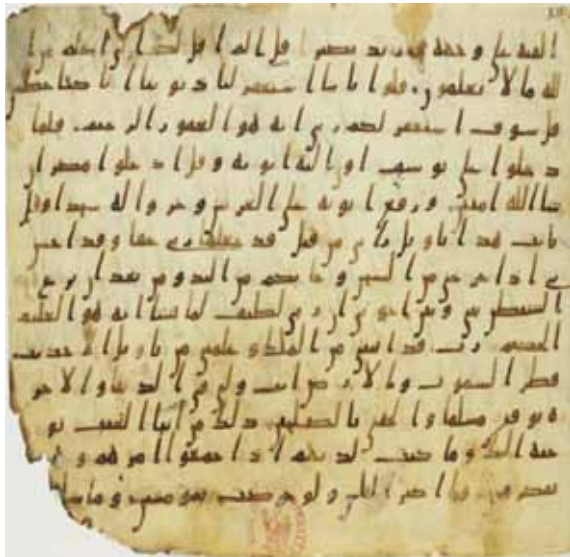 القيه على وجهه فارتد بصيرا قل الم اقل لكم اني اعلم من ا
لله ما لا تعلمون قلوا يابانا استغفر لنا ذنوبنا انا كنا خطين
قل سوف استغفر لكم ربي انه هو الغفور الرحيم فلما
دخلوا على يوسف اوى اليه ابويه وقل ادخلوا مصر ان
شا الله امنين ورفع ابويه على العرش وخروا له سجدا وقل
يابت هذا تاويل من قبل قد جعلها ربي حقا وقد احسن
بي اذ اخرجني من السجن وجا بكم من البدو من بعد ان نزغ
الشيطن بيني وبين اخوتي ان ربي لطيف لما يشا انه هو العليم
الحكيم رب قد اتيتني من الملك وعلمتني من تاويل الاحديث
فطر السموت والارض انت وليي في الدنيا والاخر
ه توفني مسلما والحقني بالصلحين ذلك من انبا الغيب نو
حيه اليك وما كنت لديهم اذ اجمعوا امرهم و
يمكرون وما اكثر الناس ولو حرصت بمومنين وما